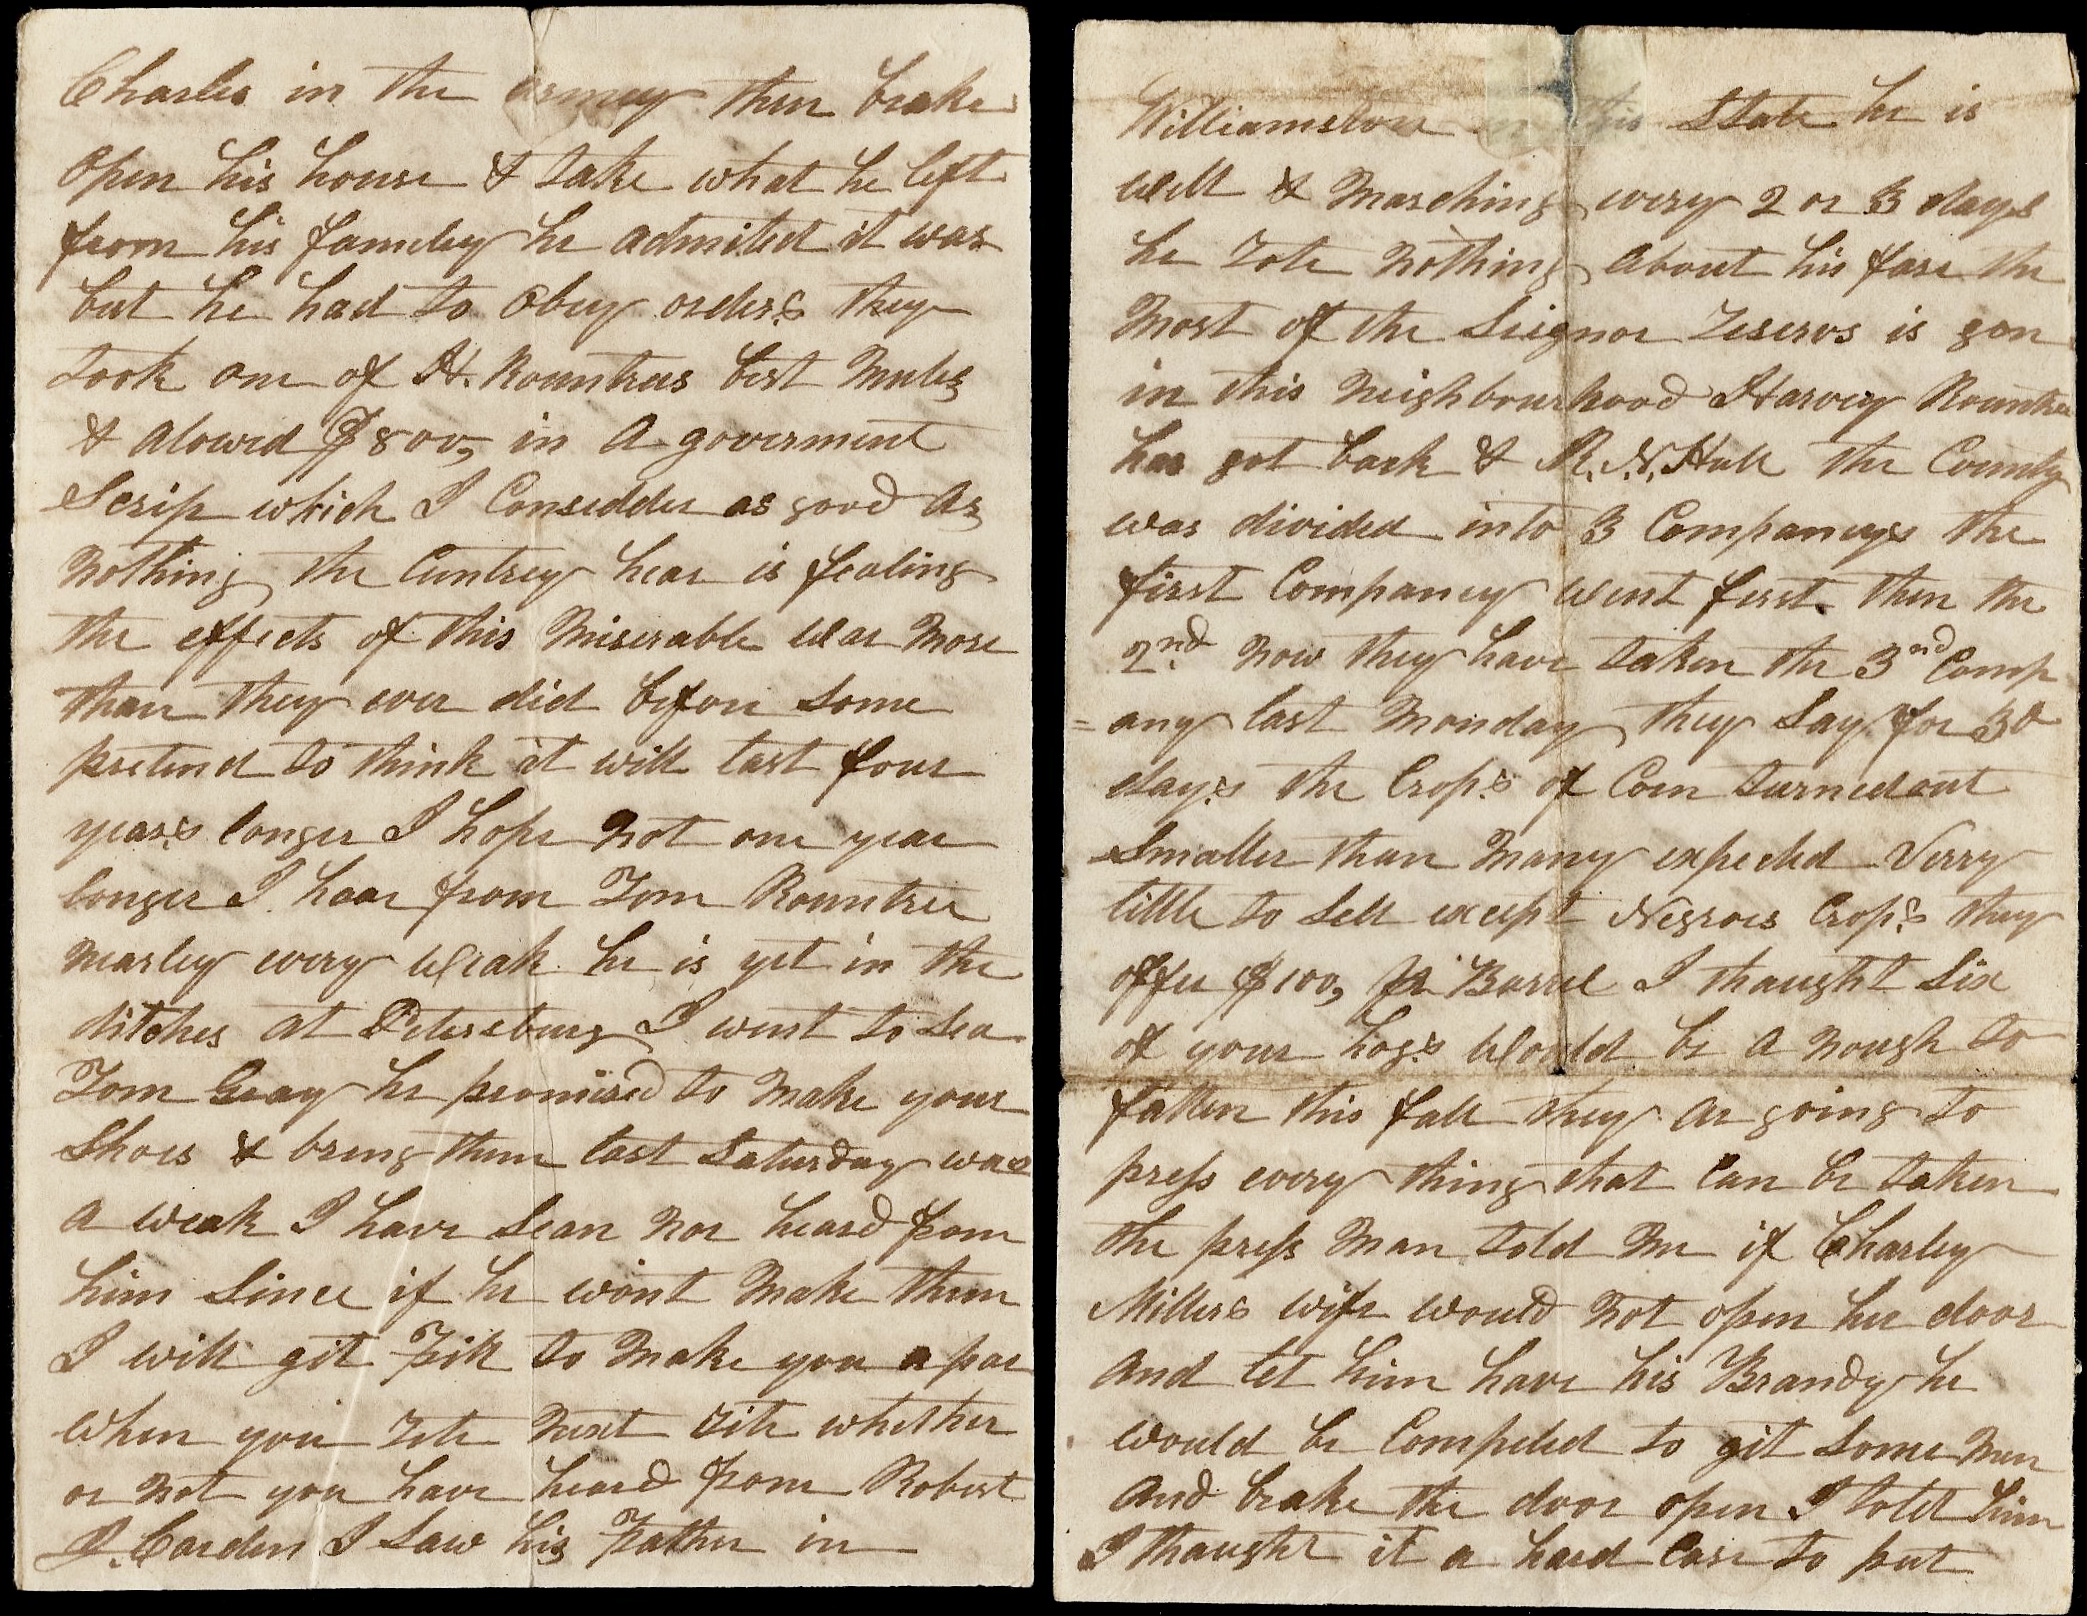 Charles in the armey then brake
open his house & take what he left
from his fameley he admited it was
but he had to obey orders they
took one of H. Rountrees best Mules
& alowed $800, in A goverment
Scrip which I Consedder as good As
Nothing the Cuntrey hear is fealing
the effects of this Miserable War More
than they ever did before some
pretend to think it will last four
years longer I hope Not one year
longer I hear from Tom Rountree
nearley every Weak he is yet in the
ditches at Petersburg I went to see
Tom Gray he promised to Make your
Shoes & bring them last Saturday was
a weak I have Sean nor heard from
him Since if he wont Make them
I will git to Make you a par
when you rite Next rite whether
or Not you have heard from Robert
J. Carden I Saw his Father in
Williamston in this State he is
well & Marching every 2 or 3 days
he rote Nothing About his fare the
Most of the Seignor reservs is gon
in this Neighbourhood Harvey Rountree
has got back & R. N. Hall the County
was divided into 3 Companeys the
first Companey went first then the
2nd Now they have taken the 3nd Comp
=any last Monday they Say for 30
days the Crops of Corn turned out
Smaller than Many expected Verry
little to Sell except Negroes Crops they
offer $100, pr Barrel I thaught Six
of your hogs Would be A nough to
fatten this fall they ar going to
press every thing that Can be taken
the press Man told Me if Charley
Millers wife would Not open her door
And let him have his Brandy he
would be Compeled to git Some Men
And brake the door open I told him
I thaught it a hard Case to put